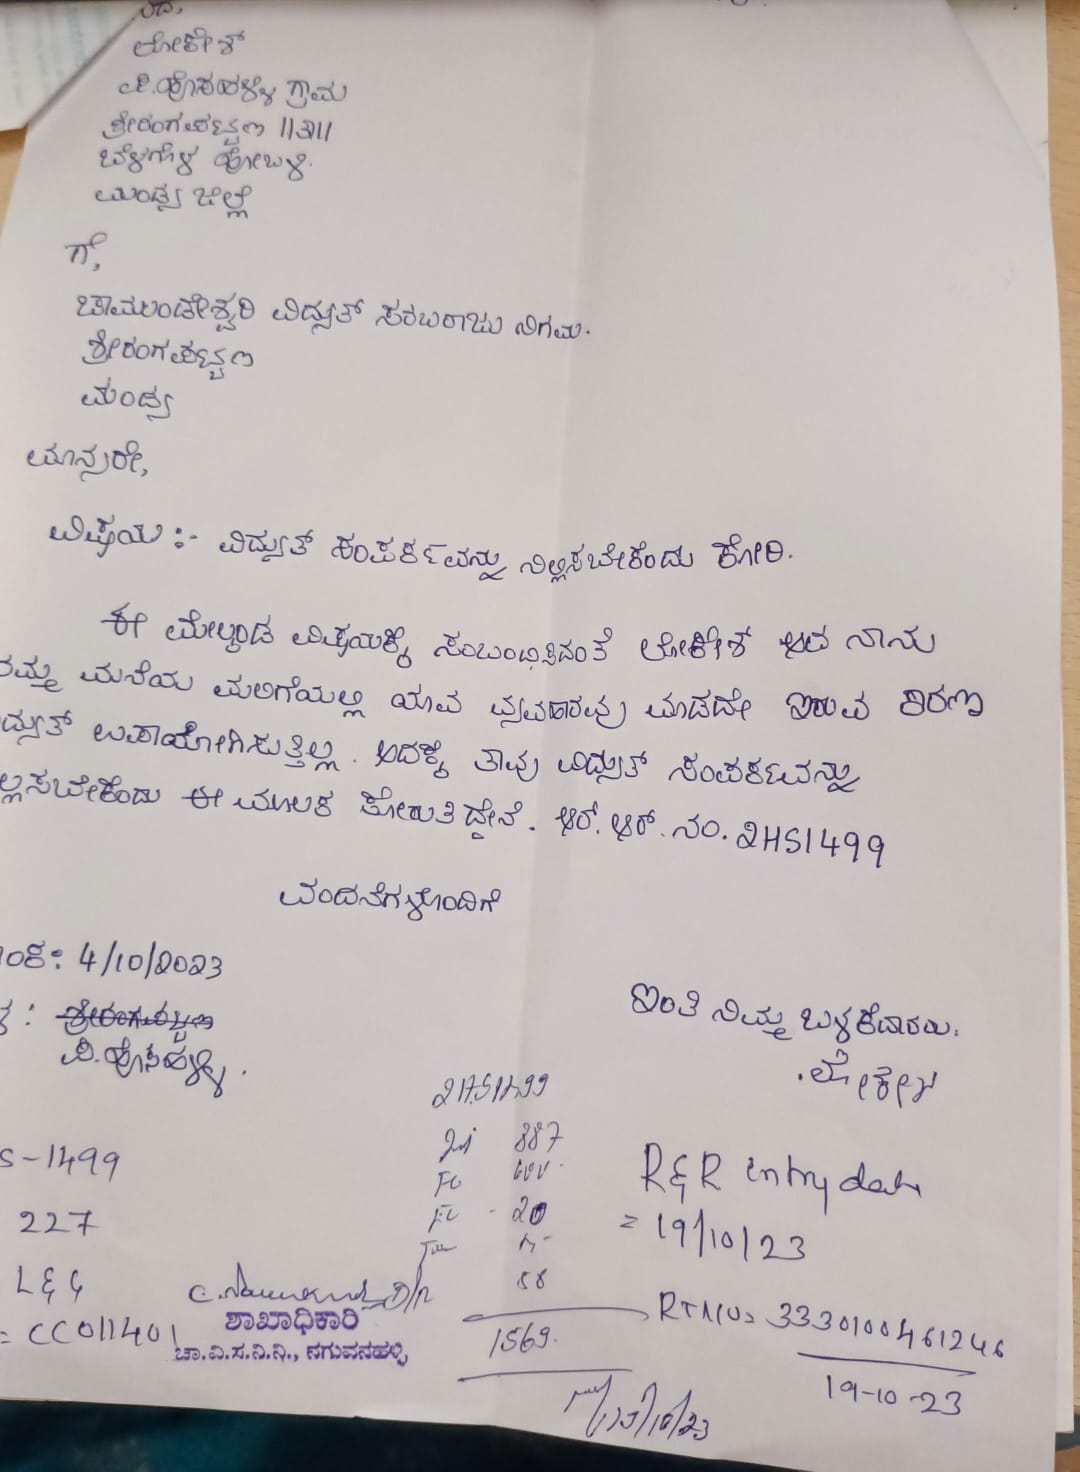 ಲೋಕೇಶ್
ಪಿ.ಹೊಸಹಳ್ಳಿ ಗ್ರಾಮ
ಶ್ರೀರಂಗಪಟ್ಟಣ ||ತಾ||
ಬೆಳಗೊಳ ಹೋಬಳಿ.
ಮಂಡ್ಯ ಜಿಲ್ಲೆ
ಗೆ,
ಚಾಮುಂಡೇಶ್ವರಿ ವಿದ್ಯುತ್ ಸರಬರಾಜು ನಿಗಮ.
ಶ್ರೀರಂಗಪಟ್ಟಣ
ಮಂಡ್ಯ
ಮಾನ್ಯರೇ,
ವಿಷಯ :- ವಿದ್ಯುತ್ ಸಂಪರ್ಕವನ್ನು ನಿಲ್ಲಿಸಬೇಕೆಂದು ಕೋರಿ.
ಈ ಮೇಲ್ಕಂಡ ವಿಷಯಕ್ಕೆ ಸಂಬಂಧಿಸಿದಂತೆ ಲೋಕೇಶ್ ಆದ ನಾನು
ನಮ್ಮ ಮನೆಯ ಮಳಿಗೆಯಲ್ಲಿ ಯಾವ ವ್ಯವಹಾರವು ಮಾಡದೇ ಇರುವ ಕಾರಣ
ದ್ಯುತ್ ಉಪಾಯೋಗಿಸುತ್ತಿಲ್ಲ. ಅದಕ್ಕೆ ತಾವು ವಿದ್ಯುತ್ ಸಂಪರ್ಕವನ್ನು
ಲ್ಲಿಸಬೇಕೆಂದು ಈ ಮೂಲಕ ಕೋರುತಿದ್ದೇನೆ. ಆರ್. ಆರ್. ನಂ. 2HS1499
ವಂದನೆಗಳೊಂದಿಗೆ
ಾಂಕ: 4/10/2023
ಳ : ಶ್ರೀರಂಗಪಟ್ಟಣ
ಪಿ.ಹೊಸಹಳ್ಳಿ.
ಇಂತಿ ನಿಮ್ಮ ಬಳಕೆದಾರರು.
ಲೋಕೇಶ
2HS1499
887
FC
- 20
88
1569.
S-1499
227
L&G
= CC011401
ಶಾಖಾಧಿಕಾರಿ
ಚಾ.ವಿ.ಸ.ನಿ.ನಿ., ನಗುವನಹಳ್ಳಿ
R&R entry date
= 19/10/23
3330100461246
19-10-23